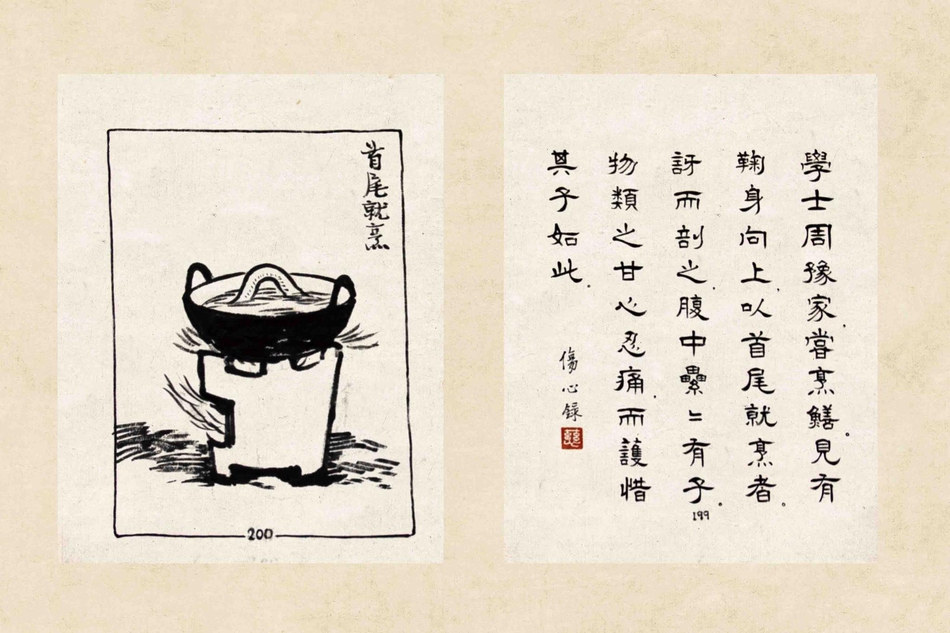 首尾就烹
200
學士周豫家.嘗烹鱔。見有
鞠身向上.以首尾就烹者。
訝而剖之.腹中纍〻有子。
物類之甘心忍痛.而護惜
其子如此.
傷心録
199